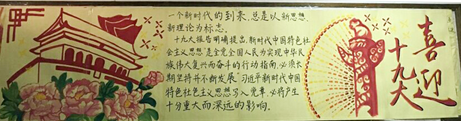 一个新时代的到来,总是以新思想、
新理论为标志。
十九大报告明确提出,新时代中国特色社
会主义思想"是全党全国人民为实现中华民
族伟大复兴而奋斗的行动指南,必须长
期坚持并不断发展。习近平新时代中国
特色社会主义思想写入党章,必将产生
十分重大而深远的影响。
喜迎
十九大